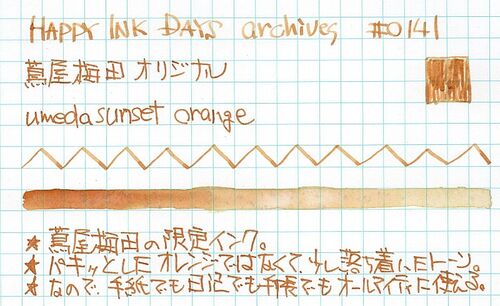 HAPPY INK DAYS archives #0141
蔦屋梅田 オリジナル
umeda sunset orange
★ 蔦屋梅田の限定インク。
★ パキッとした オレンジではなくて、少し落ち着いたトーン。
★ なので、手紙でも日記でも手帳でもオールマイティに使える。